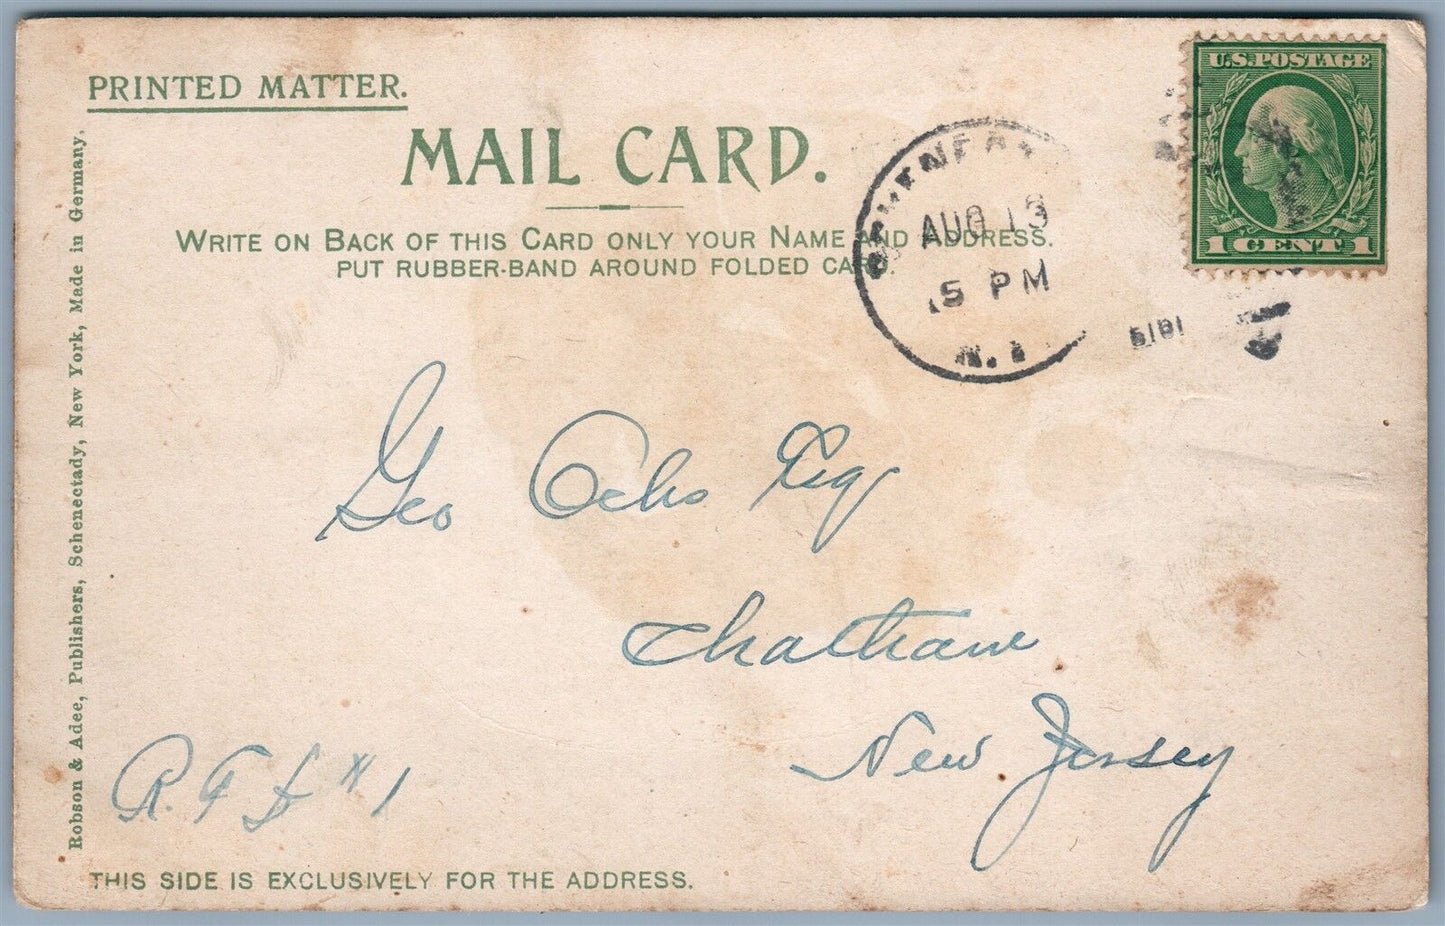 PRINTED MATTER.
MAIL CARD.
WRITE ON BACK OF THIS CARD ONLY YOUR NAME AND ADDRESS.
PUT RUBBER-BAND AROUND FOLDED CARD.
U.S. POSTAGE
1 CENT 1
AUG 13
5 PM
N.Y
Geo Ochs Esq
Chatham
New Jersey
R. F. D #1
THIS SIDE IS EXCLUSIVELY FOR THE ADDRESS.
Robson & Adee, Publishers, Schenectady, New York, Made in Germany.